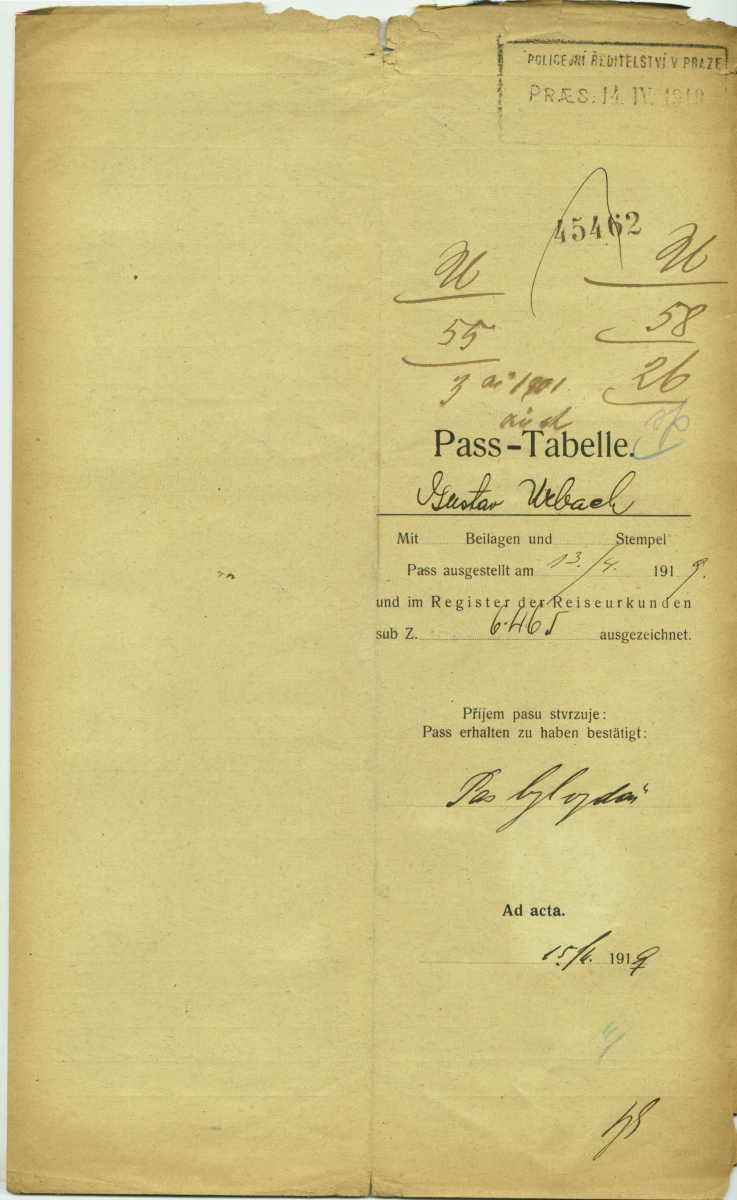 POLICEJNÍ ŘEDITELSTVÍ V PRAZE
PRÆS. 14. IV. 1919
45462
U U
55 58
3 1901 26
Pass-Tabelle.
Gustav Urbach
Mit Beilagen und Stempel
Pass ausgestellt am 13./4. 1919.
und im Register der Reiseurkunden
sub Z. 6465 ausgezeichnet.
Příjem pasu stvrzuje:
Pass erhalten zu haben bestätigt:
Pas byl vydán
Ad acta.
15/4. 1919